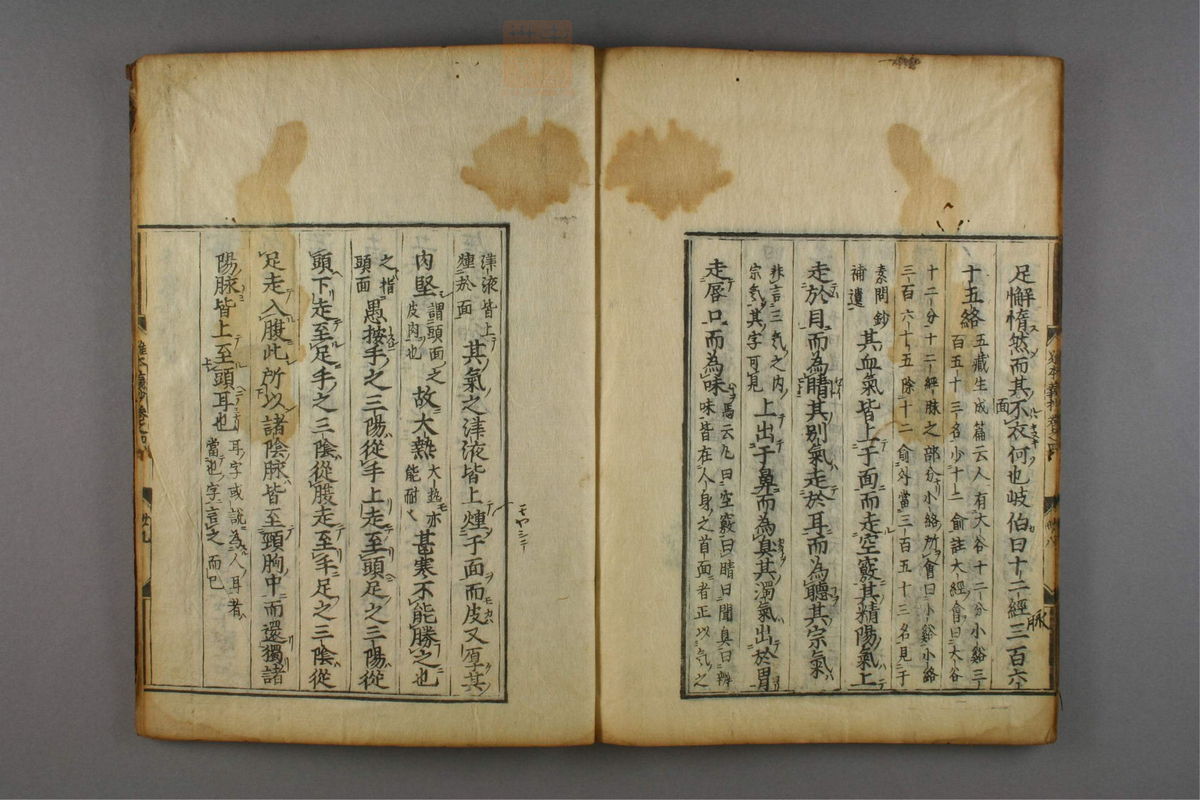 足懈惰然而其不衣何也岐伯曰十二經三百六
面
脉
十五絡
五藏生成篇云人有大谷十二分小谿三
百五十三名少十二俞註大經會曰大谷
十二分十二經脉之部分小絡所會曰小谿小絡
三百六十五除十二俞外當三百五十三名見于
素問鈔
補遺
其血氣皆上于面而走空竅其精陽氣上
走於目而為睛其別氣走於耳而為聽其宗氣
非言三氣之内
宗氣其字可見
上出于鼻而為臭其濁氣出於胃
走唇口而為味
馬云凡曰空竅曰睛曰聞臭曰辨
味皆在人身之首面者正以氣之
津液皆上
熏於面
其氣之津液皆上熏于面而皮又厚其
肉堅
謂頭面之
皮肉也
故大熱
大熱亦
能耐
甚寒不能勝之也
之指
頭面
愚按手之三陽從手上走至頭足之三陽從
頭下走至足手之三陰從腹走至手足之三陰從
足走入腹此所以諸陰脉皆至頸胸中而還獨諸
陽脉皆上至頭耳也
耳字或說為人耳者
當也字言之而已